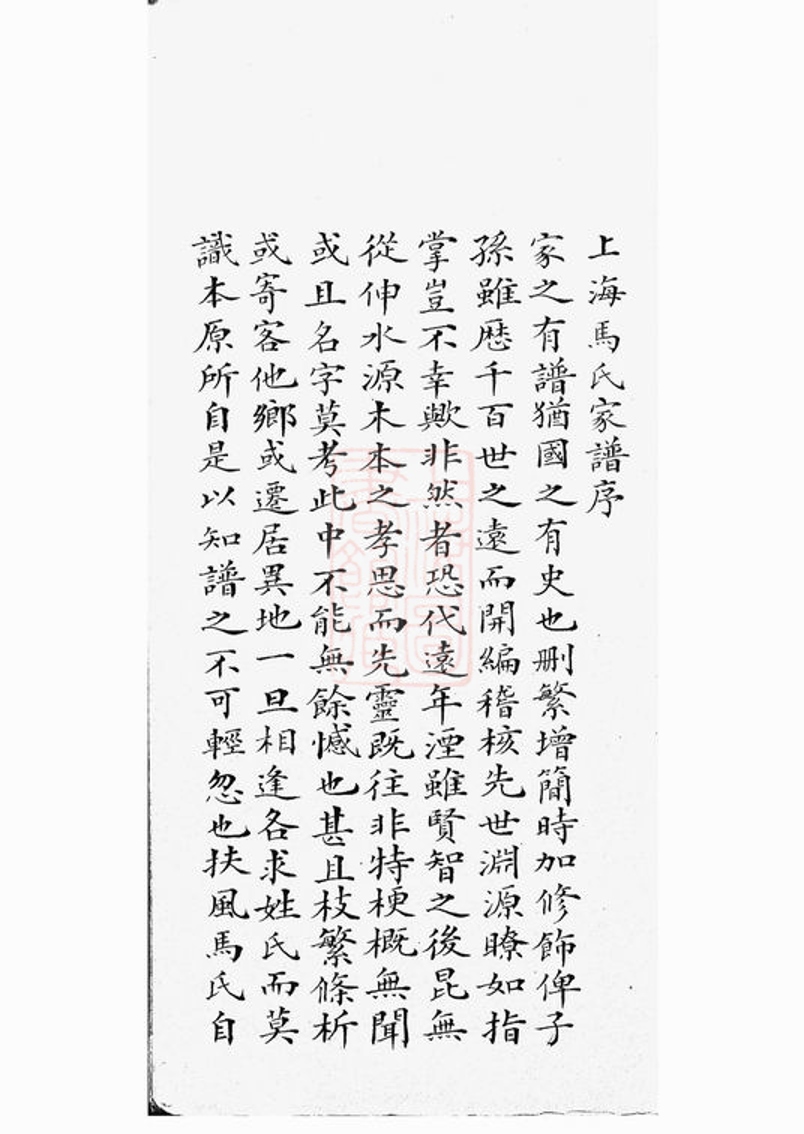 上海馬氏家譜序
家之有譜猶國之有史也刪繁增簡時加修飾俾子
孫雖歷千百世之遠而開編稽核先世淵源瞭如指
掌豈不幸歟非然者恐代遠年湮雖賢智之後昆無
從伸水源木本之孝思而先靈既往非特梗概無聞
或且名字莫考此中不能無餘憾也甚且枝繁條析
或寄客他鄉或遷居異地一旦相逢各求姓氏而莫
識本原所自是以知譜之不可輕忽也扶風馬氏自